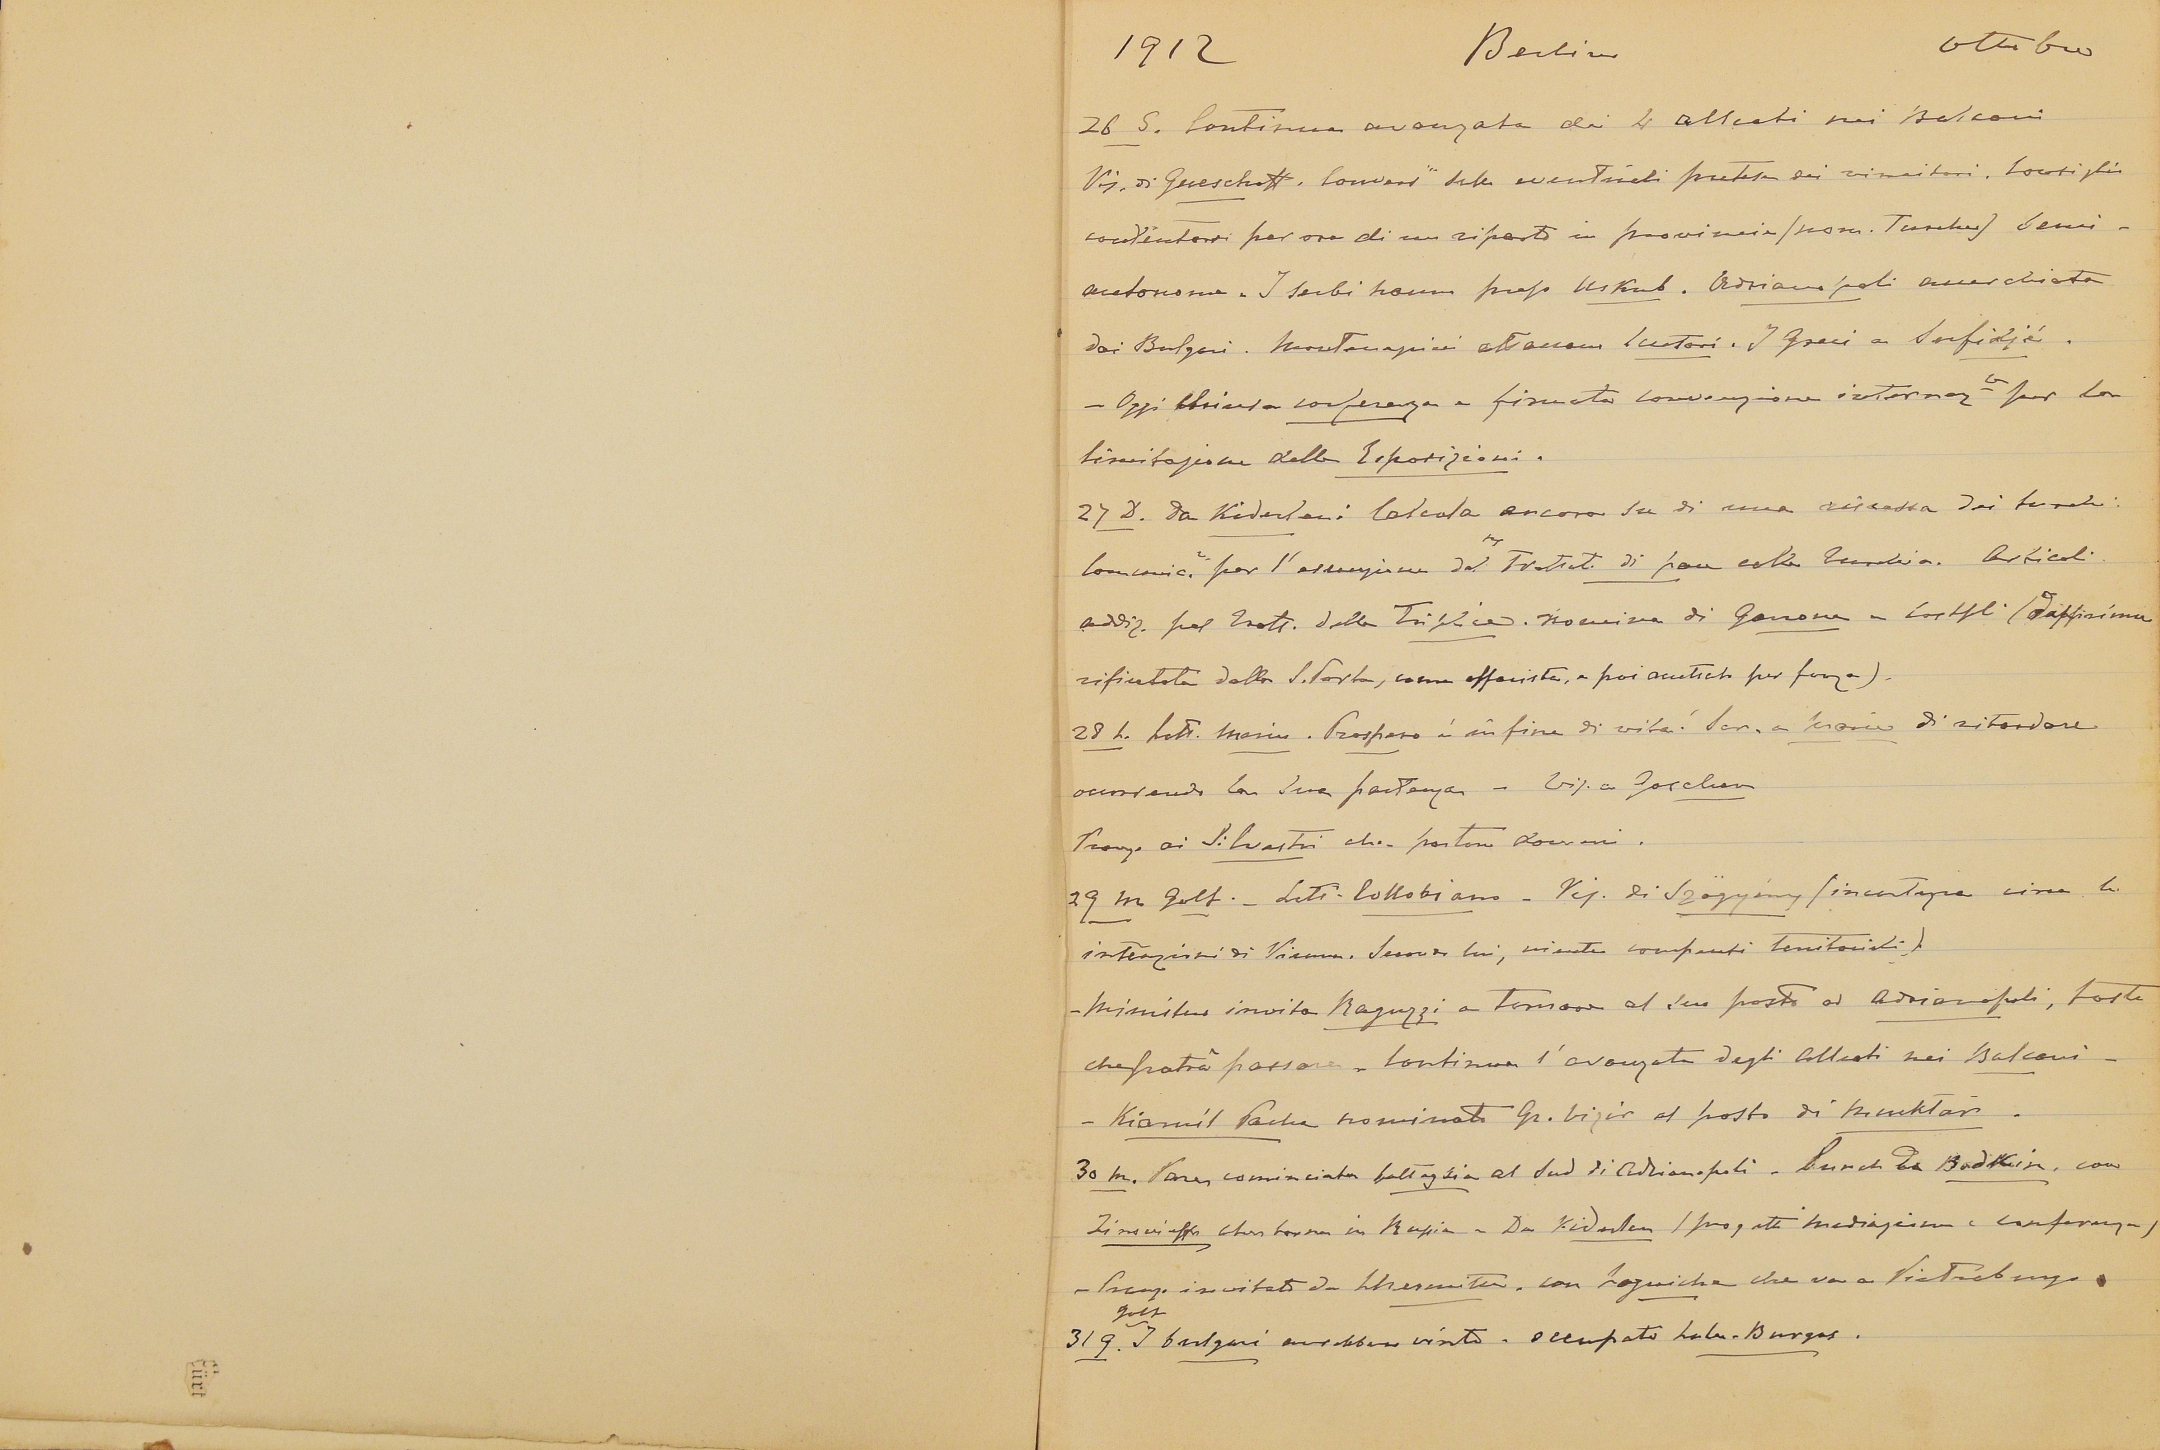 1912 Berlino ottobre
26 S. Continua avanzata dei 4 alleati nei Balcani
Vis. di Gueschoff. Convers.ne sulle eventuali pretese dei vincitori. Consiglio
contentarsi per ora di un riparto in provincie (nom. Turche) semi-
autonome. I serbi hanno preso Uskub. Adrianopoli accerchiata
dai Bulgari. Montenegrini attaccano Scutari. I Greci a Serfidjé.
- Oggi chiusa conferenza e firmata convenzione internaz.le per la
limitazione delle Esposizioni.
27 D. Da Kiderlen: Calcola ancora su di una riscossa dei turchi.
Comunic.ne per l'esecuzione del Trattato di pace colla Turchia. Articoli
addiz. pel Tratt. della Triplice. Nomina di Garroni a Costpli (dapprima
rifiutata dalla S. Porta, come offensiva, e poi accettata per forza).
28 L. Lett. Maria. Prospero è in fine di vita! Scr. a Maria di ritardare
occorrendo la sua partenza - Vis. a Goschen
Pranzo ai Silvestri che partono domani.
29 M Golf. - Lett. Collobiano - Vis. di Szögyény (incertezza circa le
intenzioni di Vienna. Secondo lui, niente compensi territoriali)
- Ministero invita Raguzzi a tornare al suo posto ad Adrianopoli, tosto
che potrà passare - Continua l'avanzata degli alleati nei Balcani -
- Kiamil Pacha nominato Gr. Vizir al posto di Mouktar.
30 M. Pare cominciata battaglia al Sud di Adrianopoli - Lunch da Bodkin, con
Zinovieff che torna in Russia - Da Kiderlen (progetti mediazione e conferenza)
- Pranzo invitato da con che va a Pietroburgo.
Golf
31 G. I bulgari avrebbero vinto e occupato Lule-Burgas.
Türk